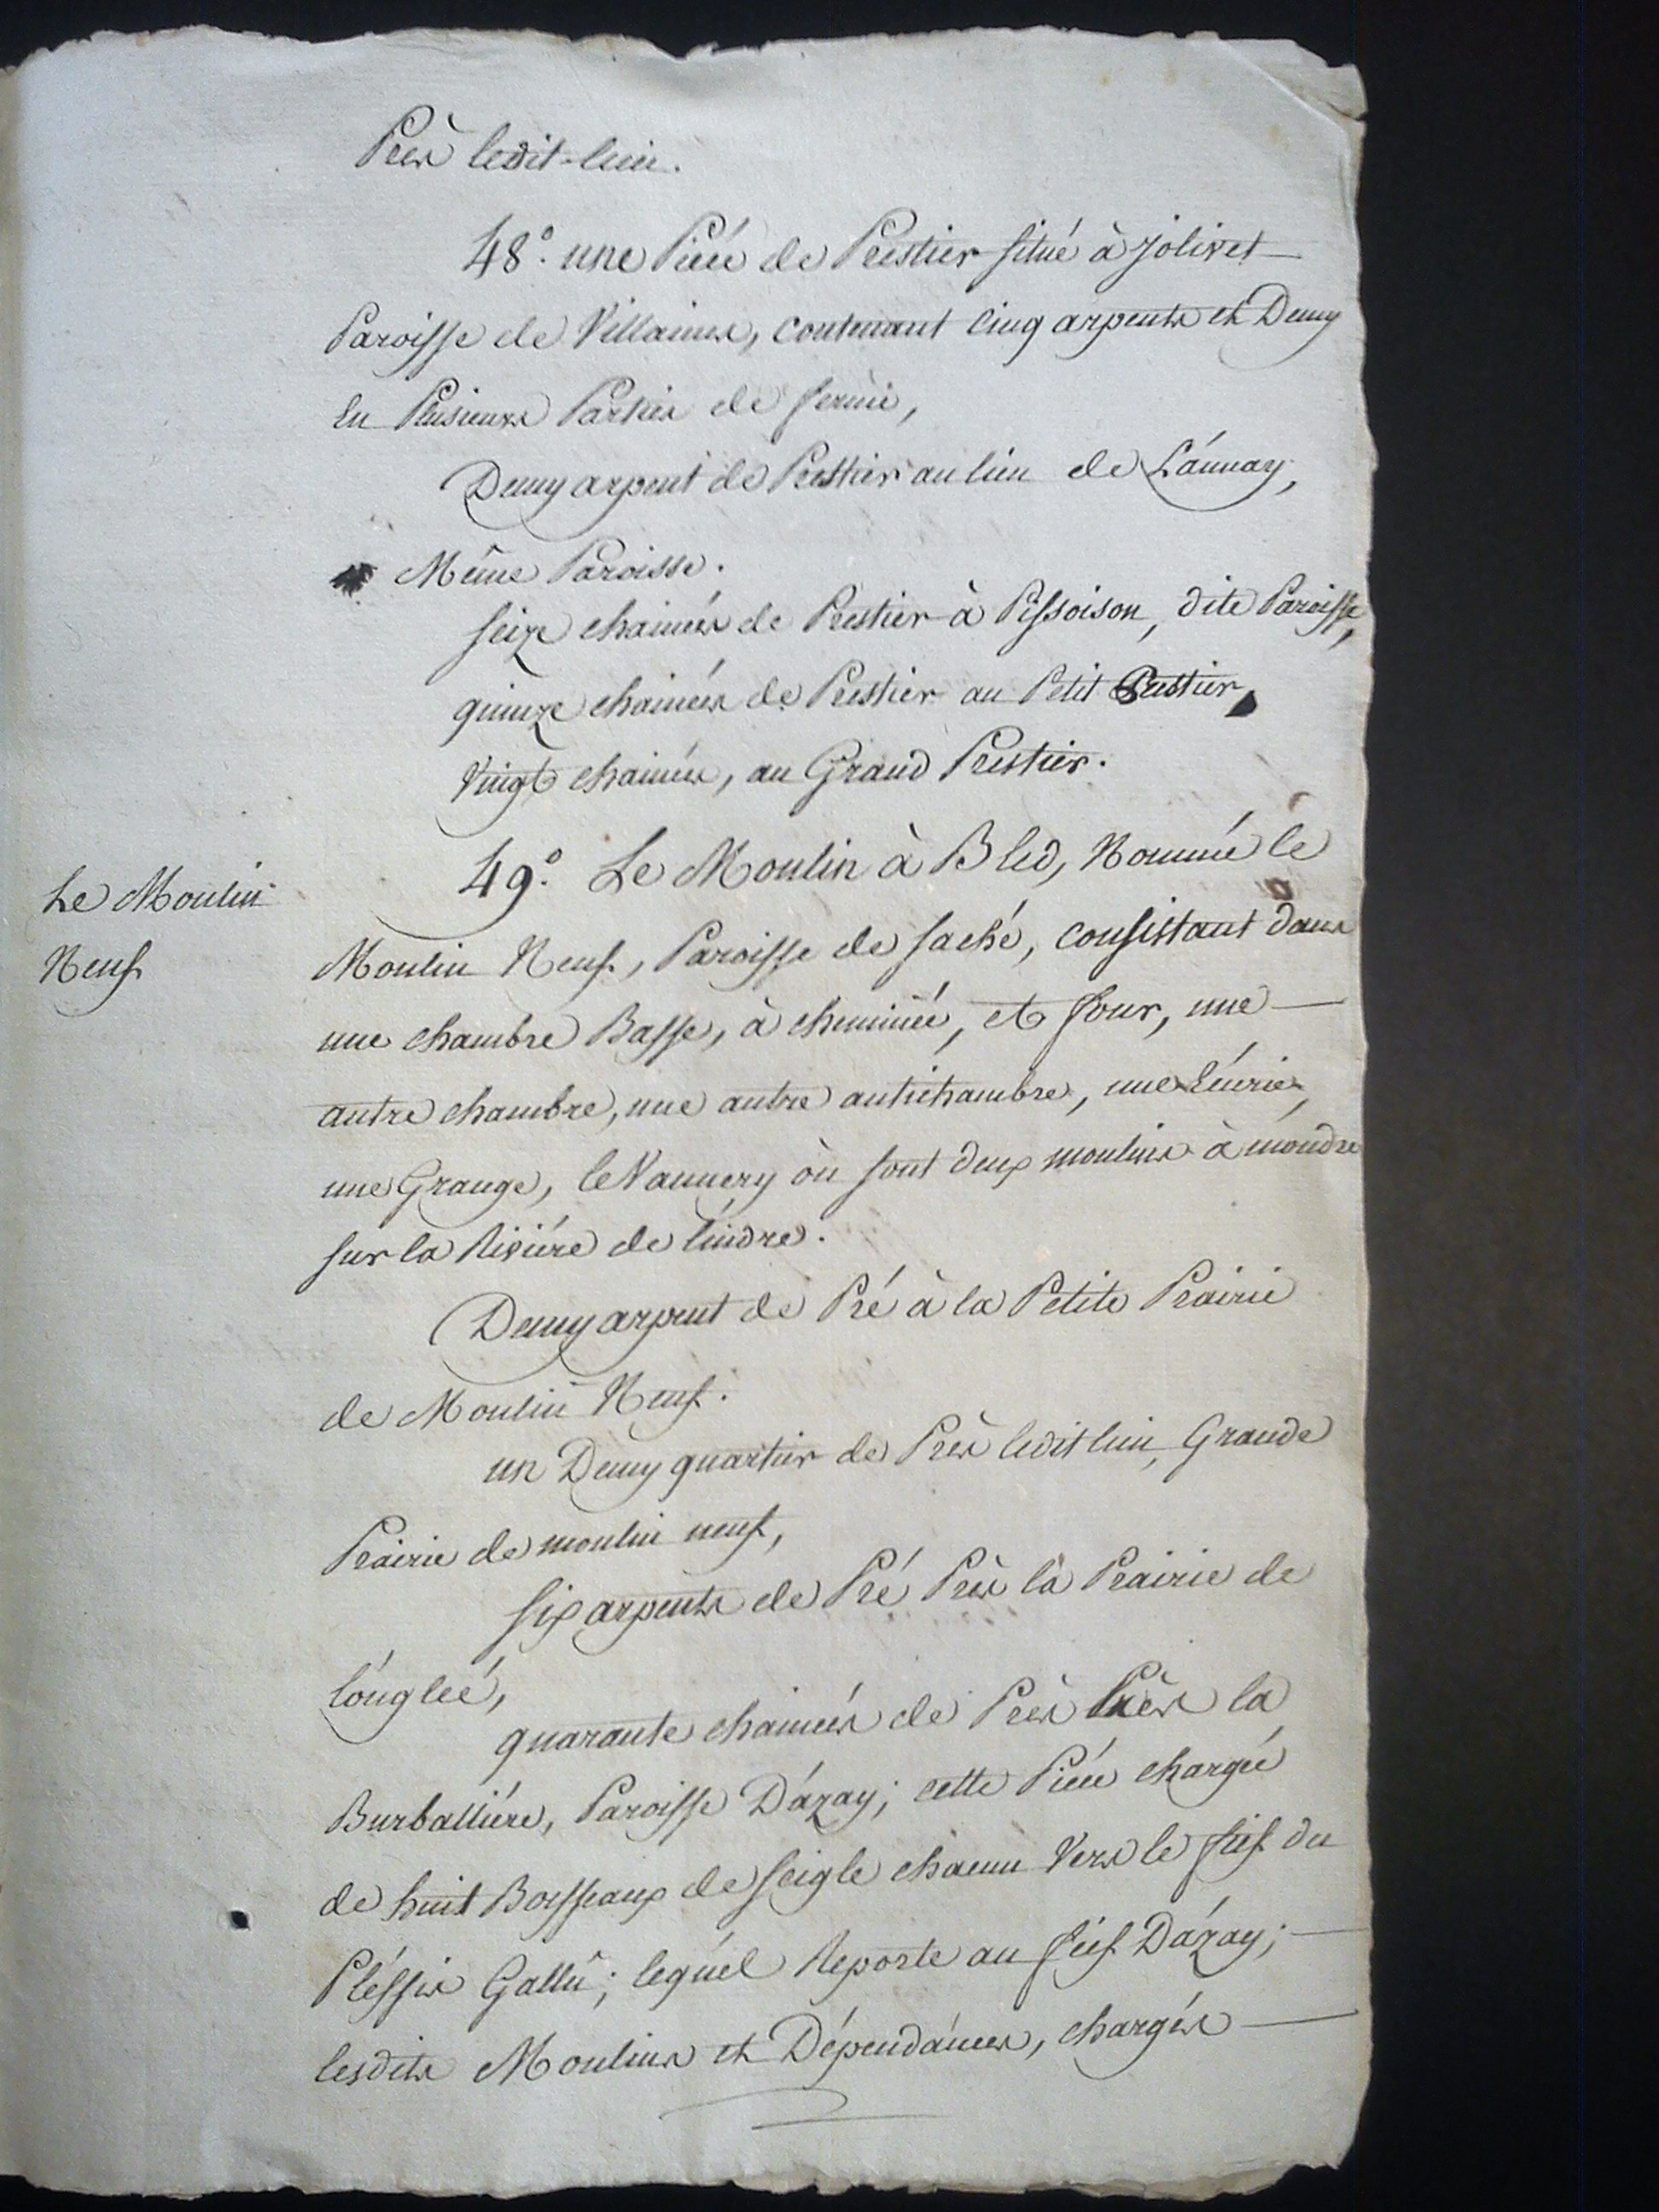 Près ledit-lieu.
48°. une Piéce de Prestier situé à jolivet
Paroisse de Villaines, contenant cinq arpents et Demy
En Plusieurs Parties de
Demy arpent de Prestier au lieu de Láunay,
Même Paroisse.
seize chainées de Prestier à Pissoison, dite Paroisse,
quinze chainées de Prestier au Petit Prestier,
Vingt chainées, au Grand Prestier.
49°. Le Moulin à Bled, Nommé le
Le Moulin
Neuf
Moulin Neuf, Paroisse de saché, consistant dans
une chambre Basse, à cheminée, et four, une
autre chambre, une autre antichambre, une Ecurie,
une Grange, le Vannery où sont deux moulins à moudre
sur la Riviére de lindre.
Demy arpent de Pré à la Petite Prairie
de Moulin Neuf.
un Demy quartier de Près ledit lieu, Grande
Prairie de moulin neuf,
six arpents de Pré Près la Prairie de
lónglée,
quarante chainées de Près Près la
Burballiére, Paroisse Dázay; cette Piéce chargée
de huit Boisseaux de seigle chacun Vers le fief du
Pléssis Gallû; lequel Reporte au fief Dázay;
lesdits Moulins et Dépendánces, chargés